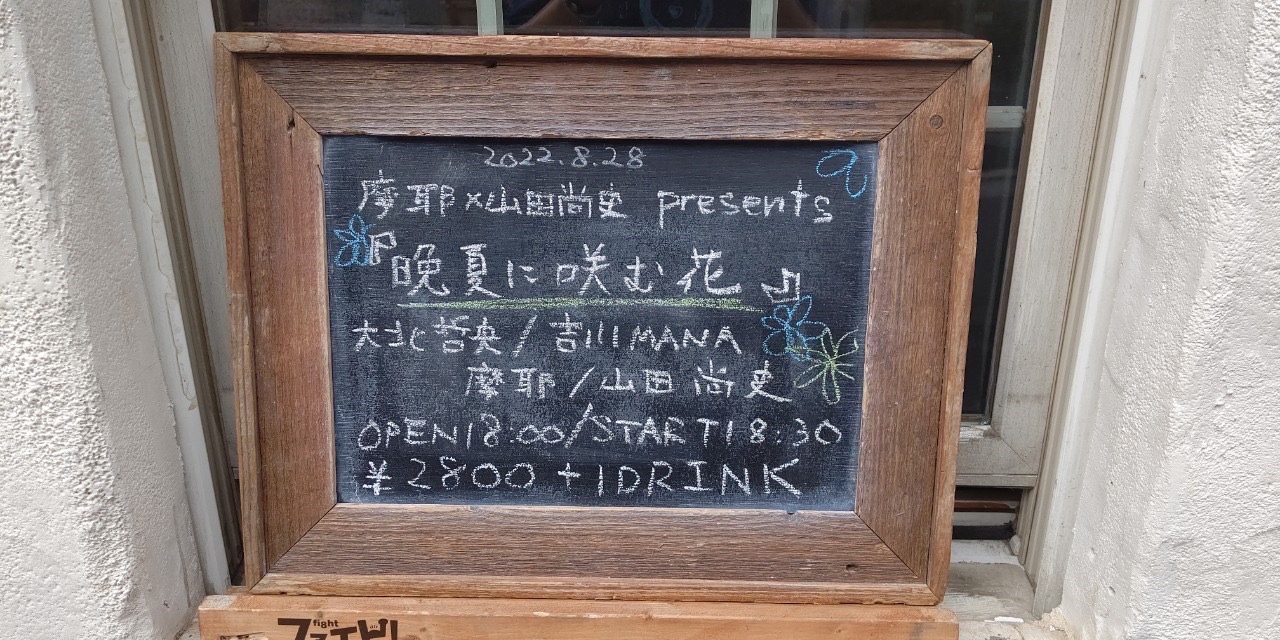 2022.8.28
摩耶×山田尚史 presents
『晩夏に咲む花』
大北哲央/吉川MANA
摩耶/山田尚史
OPEN18:00/START18:30
¥2800+1DRINK
fight